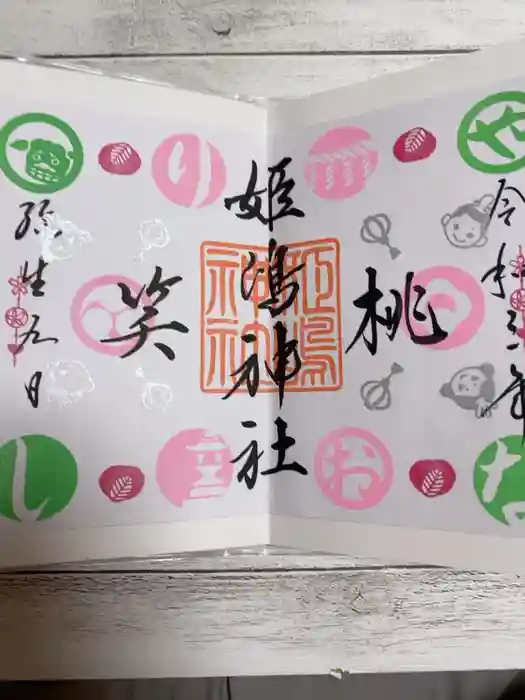 令和三年
桃
姫嶋神社
笑
弥生九日
姫嶋
神社
や
り
な
お
し